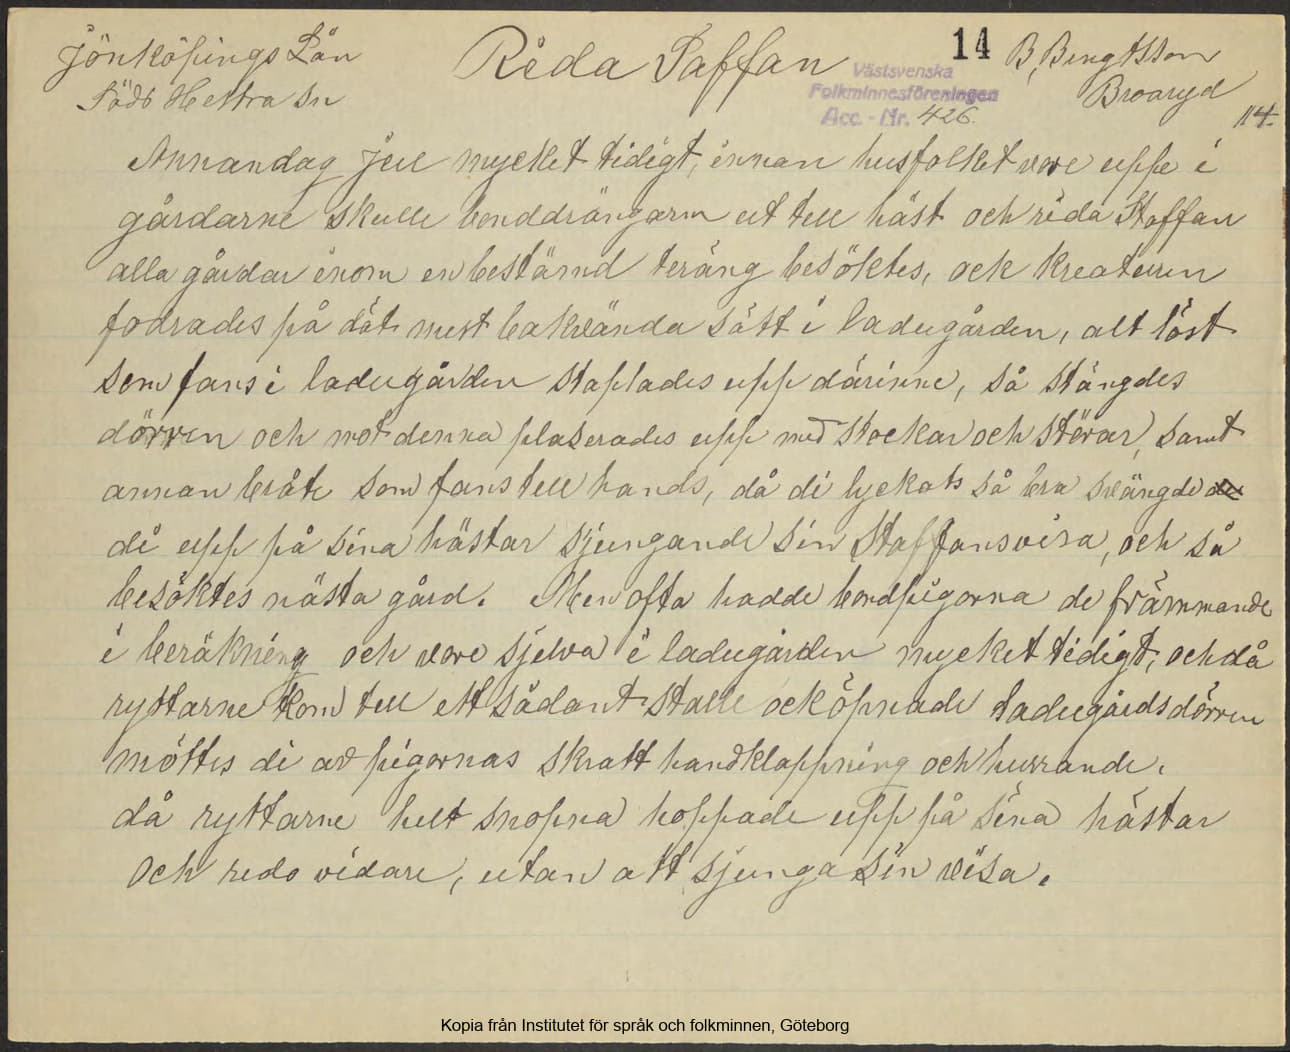 Jönköpings Län
Södb Hestra Sn
Rida Saffan
14
B, Bengtsson
Broaryd
Västsvenska
Folkminnesföreningen
Acc. - Nr. 426.
114.
Annandag jul mycket tidigt, innan husfolket vore uppe i
gårdarne skulle bonddrängarn ut till häst och rida Staffan
alla gårdar inom en bestämd teräng besöktes, ock kreaturen
fodrades på dät mest bakvända sätt i ladugården, alt löst
som fans i ladugården staplades upp därinne, så stängdes
dörren och mot denna plaserades upp med stockar och störar, samt
annan bråte som fans till hands, då di lyckats så bra svängde
di upp på sina hästar sjungande sin Staffansvisa, och så
besöktes nästa gård. Men ofta hadde bondpigorna de främmande
i beräkning och vore sjelva i ladugården mycket tidigt, och då
ryttarne kom till ett sådant ställe ock öpnade ladugårdsdörren
möttes di av pigornas skratt handklappning och hurrande.
då ryttarne helt snopna hoppade upp på sina hästar
och redo vidare, utan att sjunga sin visa.
Kopia från Institutet för språk och folkminnen, Göteborg